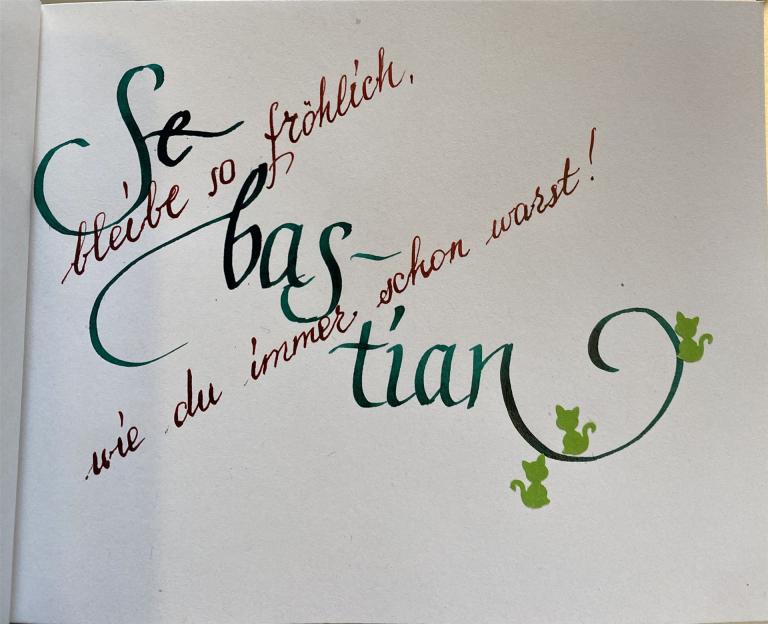 Se-
bas-
tian
bleibe so fröhlich,
wie du immer schon warst!